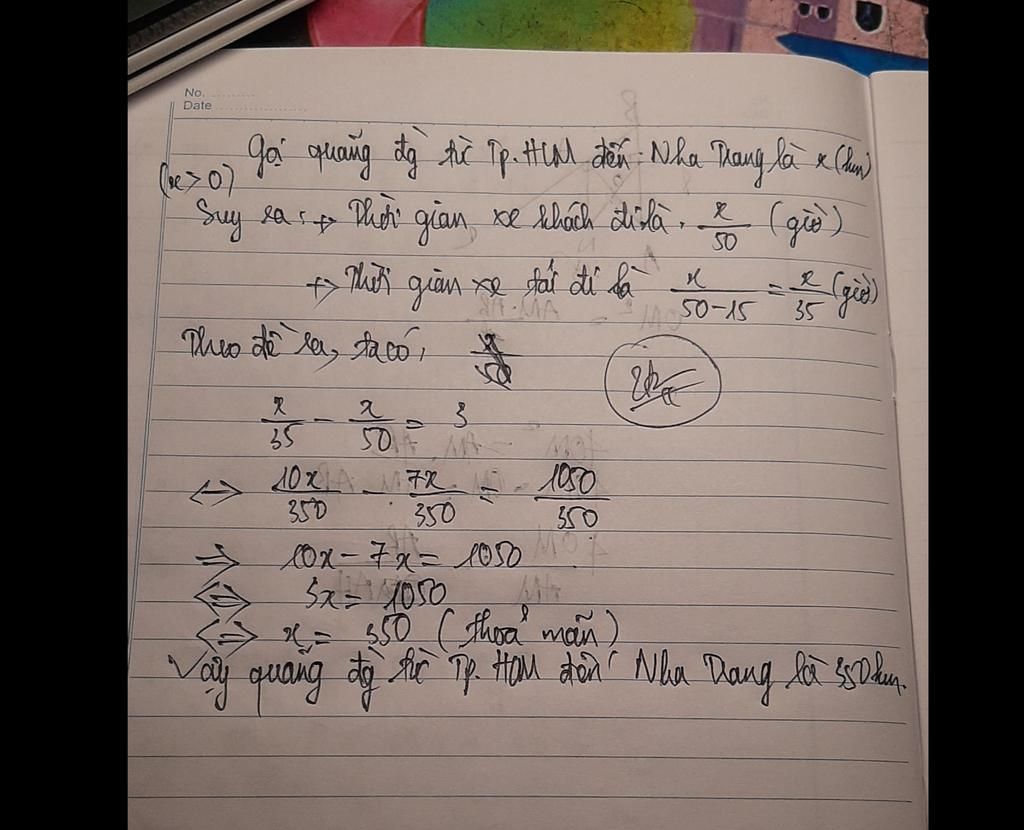 No. ..........
Date .......................
Gọi quãng đg từ Tp.HCM đến Nha Trang là x (km)
(x > 0)
Suy ra: + Thời gian xe khách đi là: x/50 (giờ)
+ Thời gian xe tải đi là x/(50-15) = x/35 (giờ)
Theo đề ra, ta có: x/50
x/35 - x/50 = 3
<=> 10x/350 - 7x/350 = 1050/350
=> 10x - 7x = 1050
<=> 3x = 1050
<=> x = 350 (thoả mãn)
Vậy quãng đg từ Tp.HCM đến Nha Trang là 350km.